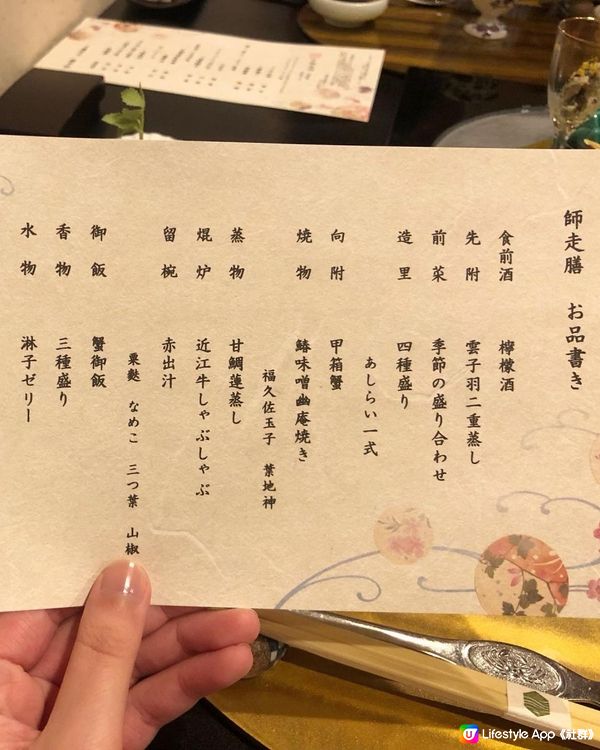 師走膳　お品書き
食前酒　檸檬酒
先附　雲子羽二重蒸し
前菜　季節の盛り合わせ
造里　四種盛り
あしらい一式
向附　甲箱蟹
焼物　鰆味噌幽庵焼き
福久佐玉子　葉地神
蒸物　甘鯛蓮蒸し
焜炉　近江牛しゃぶしゃぶ
留椀　赤出汁
粟麩　なめこ　三つ葉　山椒
御飯　蟹御飯
香物　三種盛り
水物　淋子ゼリー
U Lifestyle App《社群》